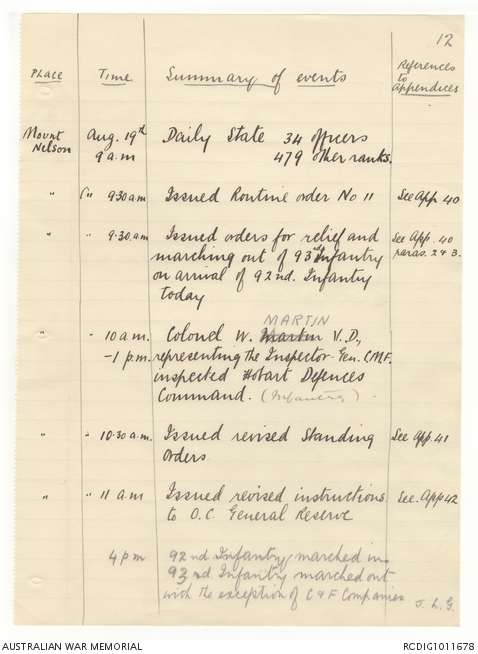 12
Place Time Summary of events References
to
Appendices
Mount Aug. 19th Daily State 34 officers
Nelson 9 a.m 479 other ranks.
" " 9.30 am Issued Routine order No 11 See App 40
" " 9.30. am Issued orders for relief and See App. 40
marching out of 93rd Infantry paras. 2 & 3.
on arrival of 92nd. Infantry
today
MARTIN
" " 10 a m. Colonel W. Martin V.D.,
-1 p.m. representing the Inspector-Gen. C.M.F.
inspected Hobart Defences
Command. (Infantry)
" " 10.30 a.m. Issued revised Standing See App. 41
Orders
" " 11 a m Issued revised instructions See. App 42
to O.C. General Reserve
4 p m 92nd Infantry marched in
93rd Infantry marched out
with the exception of C & F Companies
J. L. G.
AUSTRALIAN WAR MEMORIAL RCDIG1011678